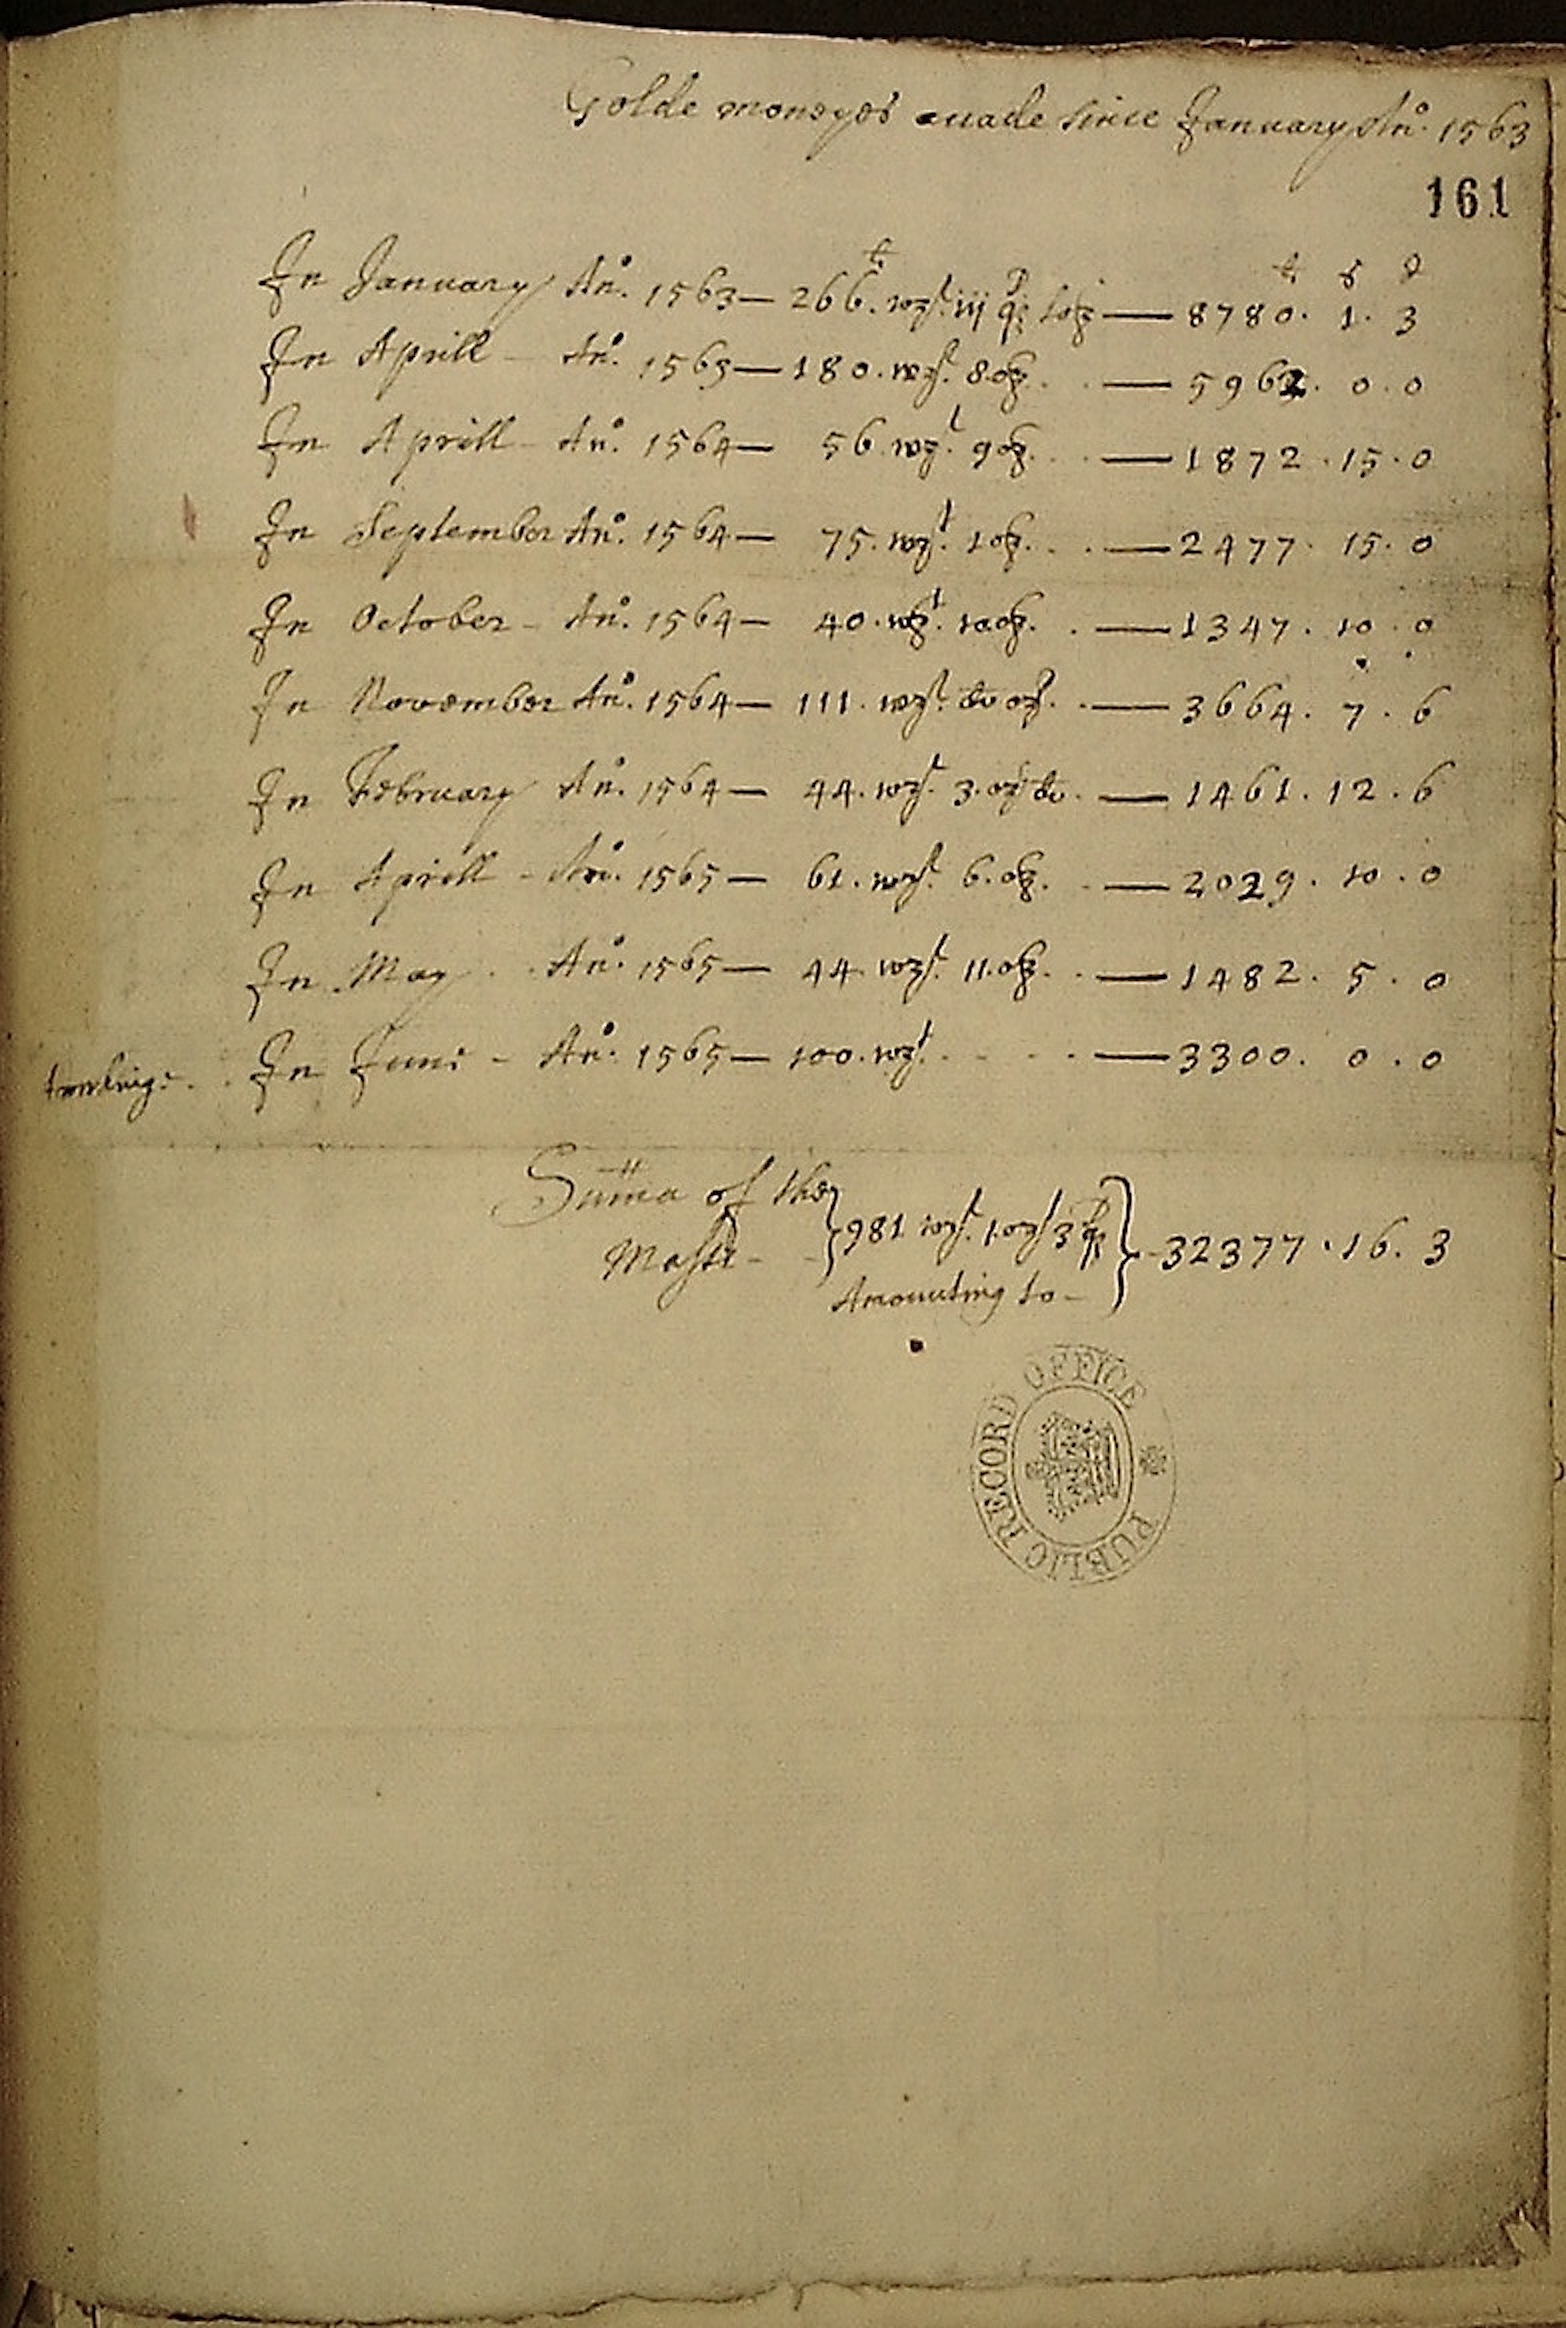 Golde moneyes made since January Ano. 1563
161
li s d
In January Ano. 1563 — 266. wzt. iij qz oz — 8780. 1. 3
In Aprill - Ano. 1563 — 180. wzt. 8. oz . . — 5962. 0. 0
In Aprill - Ano. 1564 — 56. wzt. 9 oz. . . — 1872. 15. 0
In September Ano. 1564 — 75. wzt. 1 oz. . . — 2477. 15. 0
In October - Ano. 1564 — 40. wzt. 10. oz. . — 1347. 10. 0
In November Ano. 1564 — 111. wzt. di oz. . — 3664. 7. 6
In February Ano. 1564 — 44. wzt. 3. oz di. — 1461. 12. 6
In Aprill - Ano. 1565 — 61. wzt. 6. oz. . — 2029. 10. 0
In May . . Ano. 1565 — 44. wzt. 11. oz. . — 1482. 5. 0
In Juni - Ano. 1565 — 100. wzt. . . . . — 3300. 0. 0
Suma of the
Masse - - } 981 wzt. 1. oz 3 qz } - 32377. 16. 3
Amounting to -
PUBLIC RECORD OFFICE